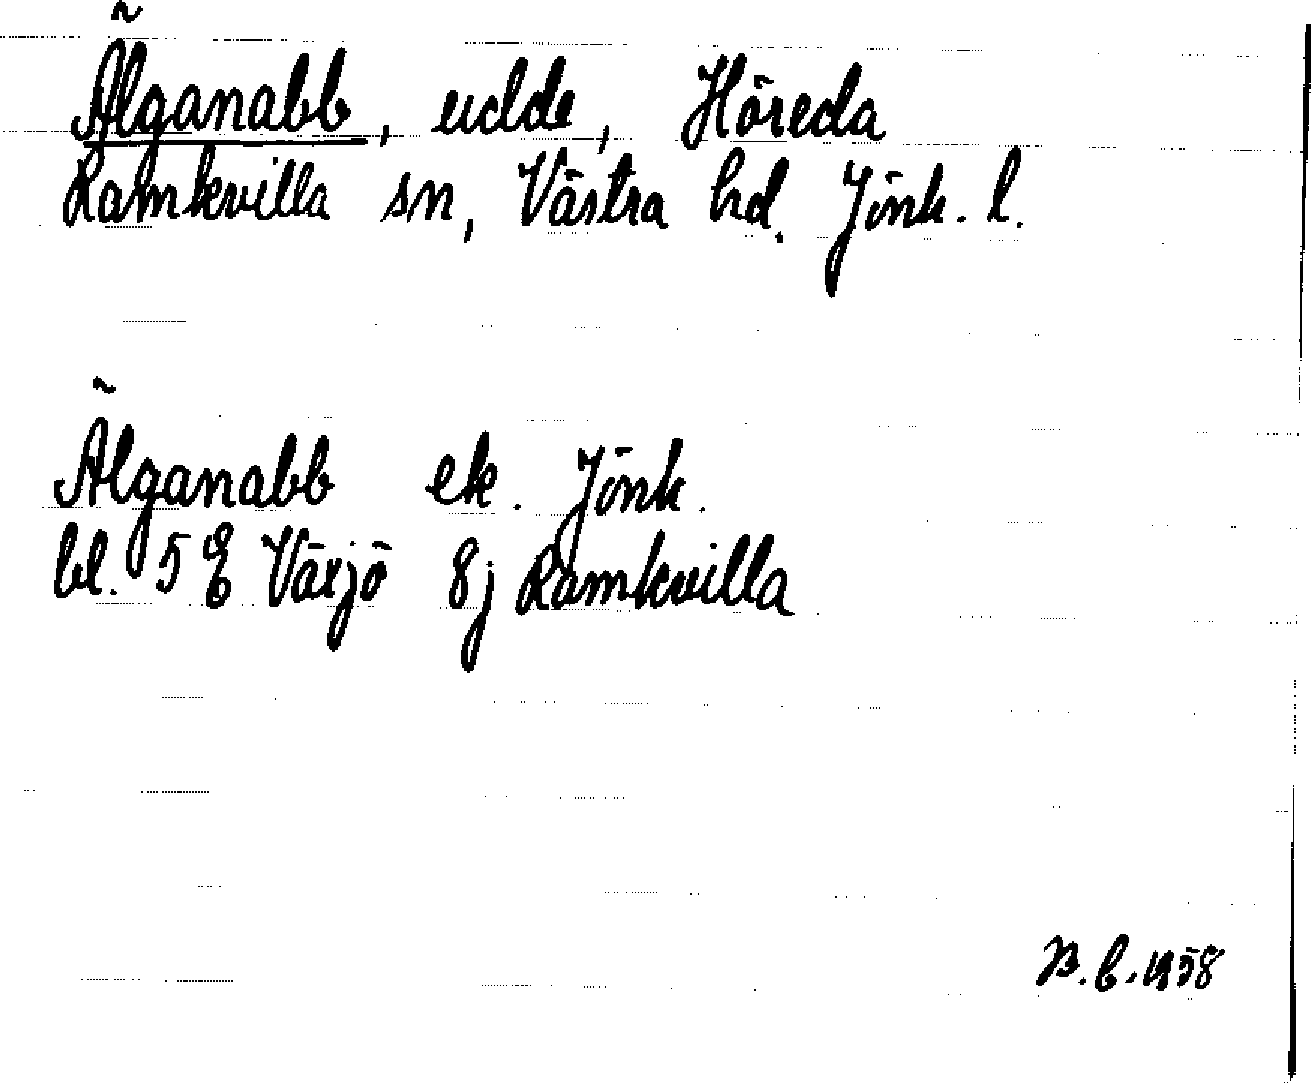 Älganabb, udde, Höreda
Ramkvilla sn, Västra hd. Jönk. l.
Älganabb ek. Jönk.
bl. 5 E Växjö 8j Ramkvilla
B.C. 1958